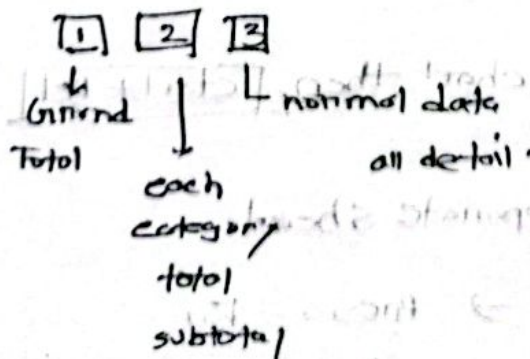 1 2 3
Grand Total
each category total subtotal
normal data all detail.